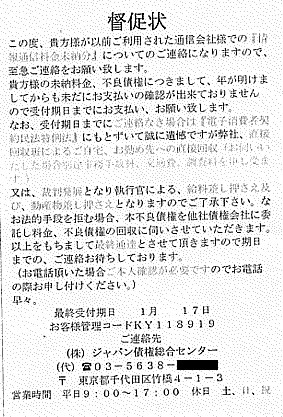 督促状
この度、貴方様が以前ご利用された通信会社様での『情
報通信料金未納分』についてのご連絡になりますので、
至急ご連絡をお願い致します。
貴方様の未納料金、不良債権につきまして、年が明けま
してからも未だにお支払いの確認が出来ておりません
ので受付期日までにお支払い、お願い致します。
なお、受付期日までにご連絡なき場合は『電子消費者契
約民法特例法』にもとずいて誠に遺憾ですが弊社、直接
回収班によるご自宅、お勤め先への直接回収（お伺いい
たした場合
、交通費、調査料を申し受けま
す）
又は、裁判発展となり執行官による、給料差し押さえ及
び、動産物差し押さえとなりますのでご了承下さい。な
お法的手段を拒む場合、本不良債権を他社債権会社に委
託し料金、不良債権の回収に伺いさせていただきます。
以上をもちまして最終通達とさせて頂きますので期日
までの、ご連絡お待ちしております。
（お電話頂いた場合ご本人確認が必要ですのでお電話
の際お申し付けください。）
早々。
最終受付期日　1月　17日
お客様管理コードKY118919
ご連絡先
（株）ジャパン債権総合センター
（代）☎03-5638-
〒 東京都千代田区竹橋4-1-3
営業時間 平日9:00～17:00 休日 土、日、祝